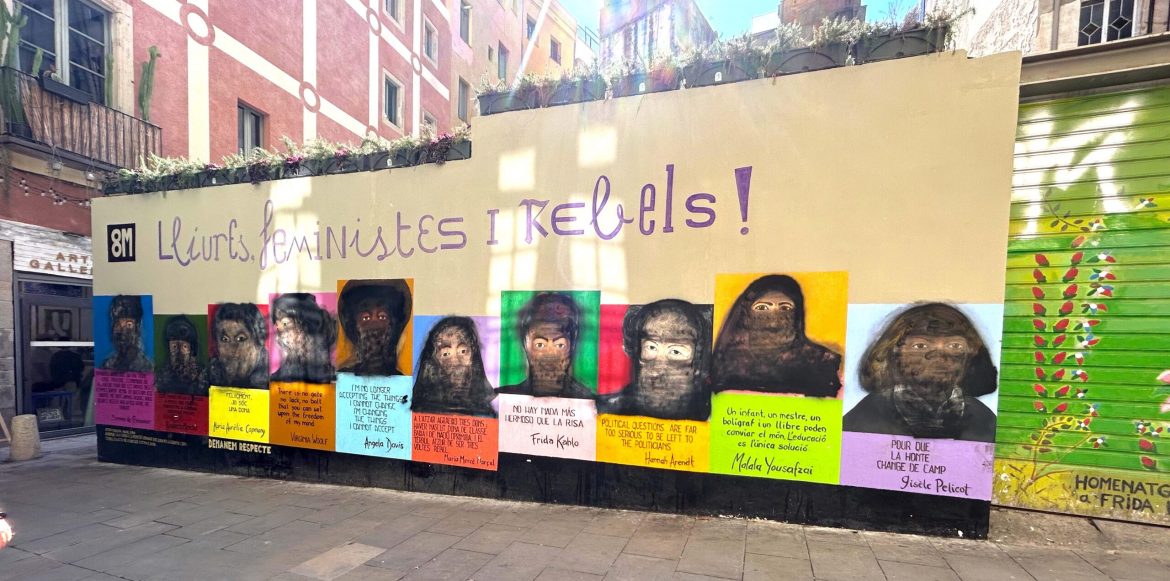 8M
Lliures, feministes i rebels!
ART
GALLE
Simone de Beauvoir
FELIÇMENT,
JO SÓC
UNA DONA
Maria Aurèlia Capmany
DEMANEM RESPECTE
There is no gate
no lock, no bolt
that you can set
upon the freedom
of my mind
VIRGINIA WOOLF
I'M NO LONGER
ACCEPTING THE THINGS
I CANNOT CHANGE
I'M CHANGING
THE THINGS
I CANNOT ACCEPT
Angela Davis
A L'ATZAR AGRAEIXO TRES DONS,
HAVER NASCUT DONA, DE CLASSE
BAIXA I DE NACIÓ OPRIMIDA I EL
TÈRBOL ATZUR DE SER TRES
VOLTES REBEL
Maria Mercè Marçal
NO HAY NADA MÁS
HERMOSO QUE LA RISA
Frida Kahlo
POLITICAL QUESTIONS ARE FAR
TOO SERIOUS TO BE LEFT TO
THE POLITICIANS
Hannah Arendt
Un infant, un mestre, un
bolígraf i un llibre poden
canviar el món. L'educació
és l'única solució
Malala Yousafzai
POUR QUE
LA HONTE
CHANGE DE CAMP
Gisèle Pelicot
HOMENATG
a FRIDA